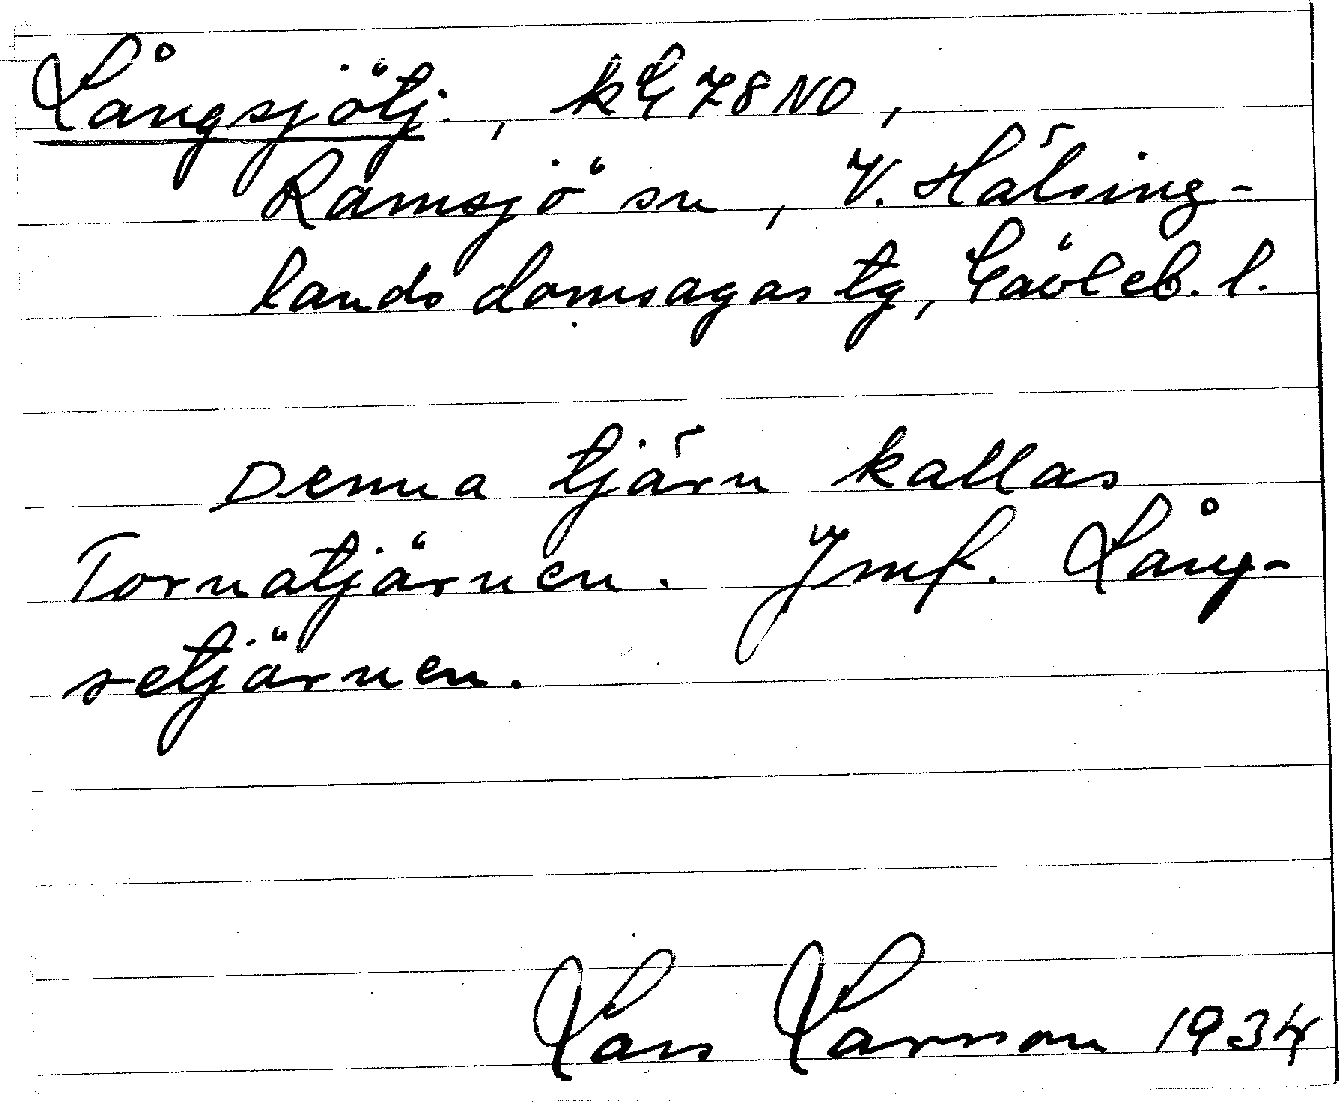 Långsjötj., kG 78 NO,
Ramsjö sn, V. Hälsing-
lands domsagas tg, Gävleb. l.
Denna tjärn kallas
Tornatjärnen. Jmf. Lång-
setjärnen.
Lars Larsson 1934